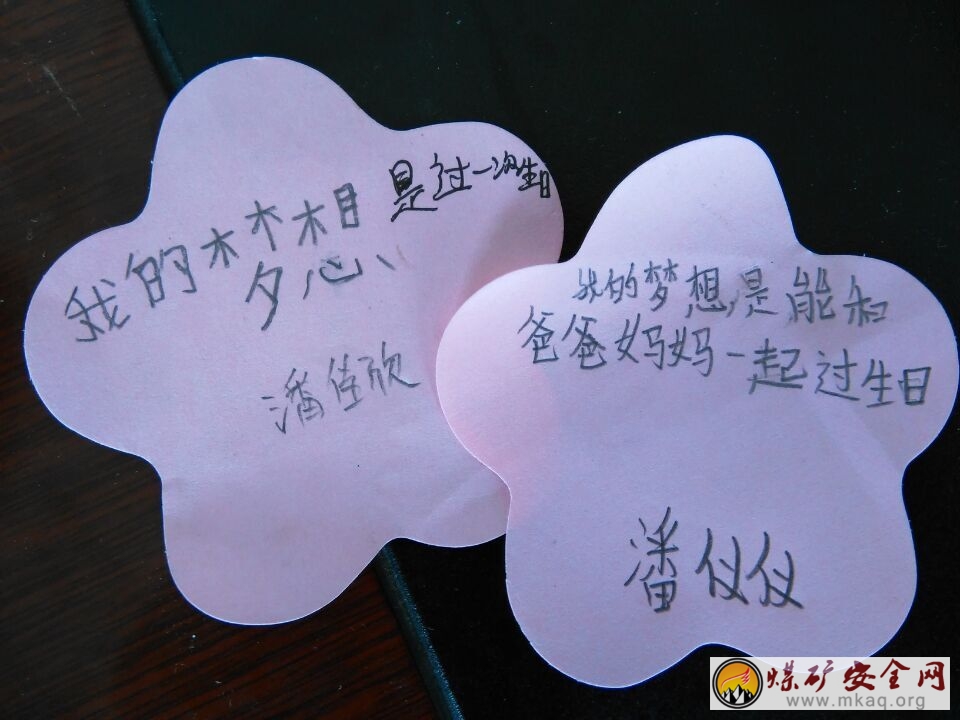 我的梦想是过一次生日
潘佳欣
我的梦想是能和
爸爸妈妈一起过生日
潘仪仪
煤矿安全网
www.mkaq.org